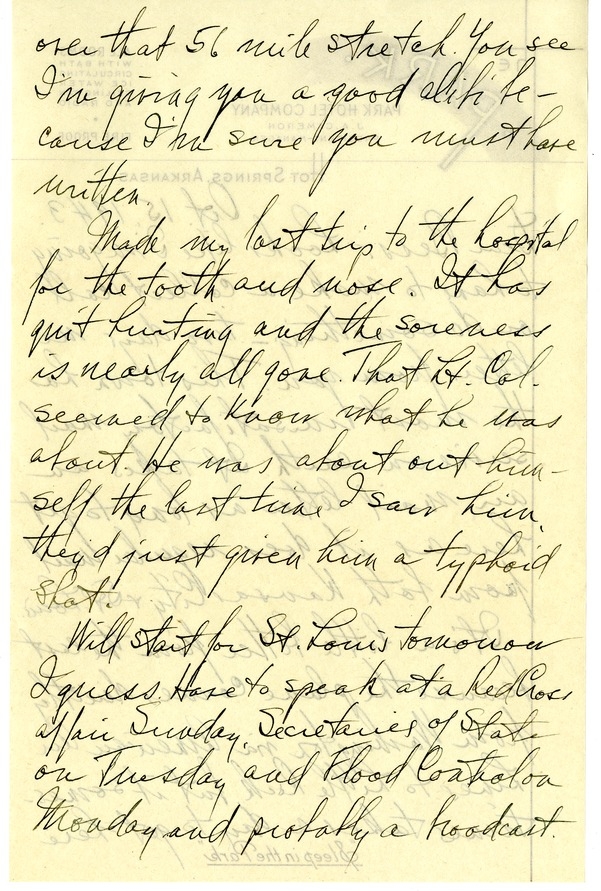 over that 56 mile stretch. You see
I'm giving you a good alibi be-
cause I'm sure you must have
written.
Made my last trip to the hospital
for the tooth and nose. It has
quit hurting and the soreness
is nearly all gone. That Lt. Col.
seemed to know what he was
about. He was about out him-
self the last time I saw him,
they'd just given him a typhoid
shot.
Will start for St. Louis tomorrow
I guess. Have to speak at a Red Cross
affair Sunday, Secretaries of State
on Tuesday and Flood Control on
Monday and probably a broadcast.
PARK HOTEL COMPANY
HOT SPRINGS, ARKANSAS
Sleep in the Park